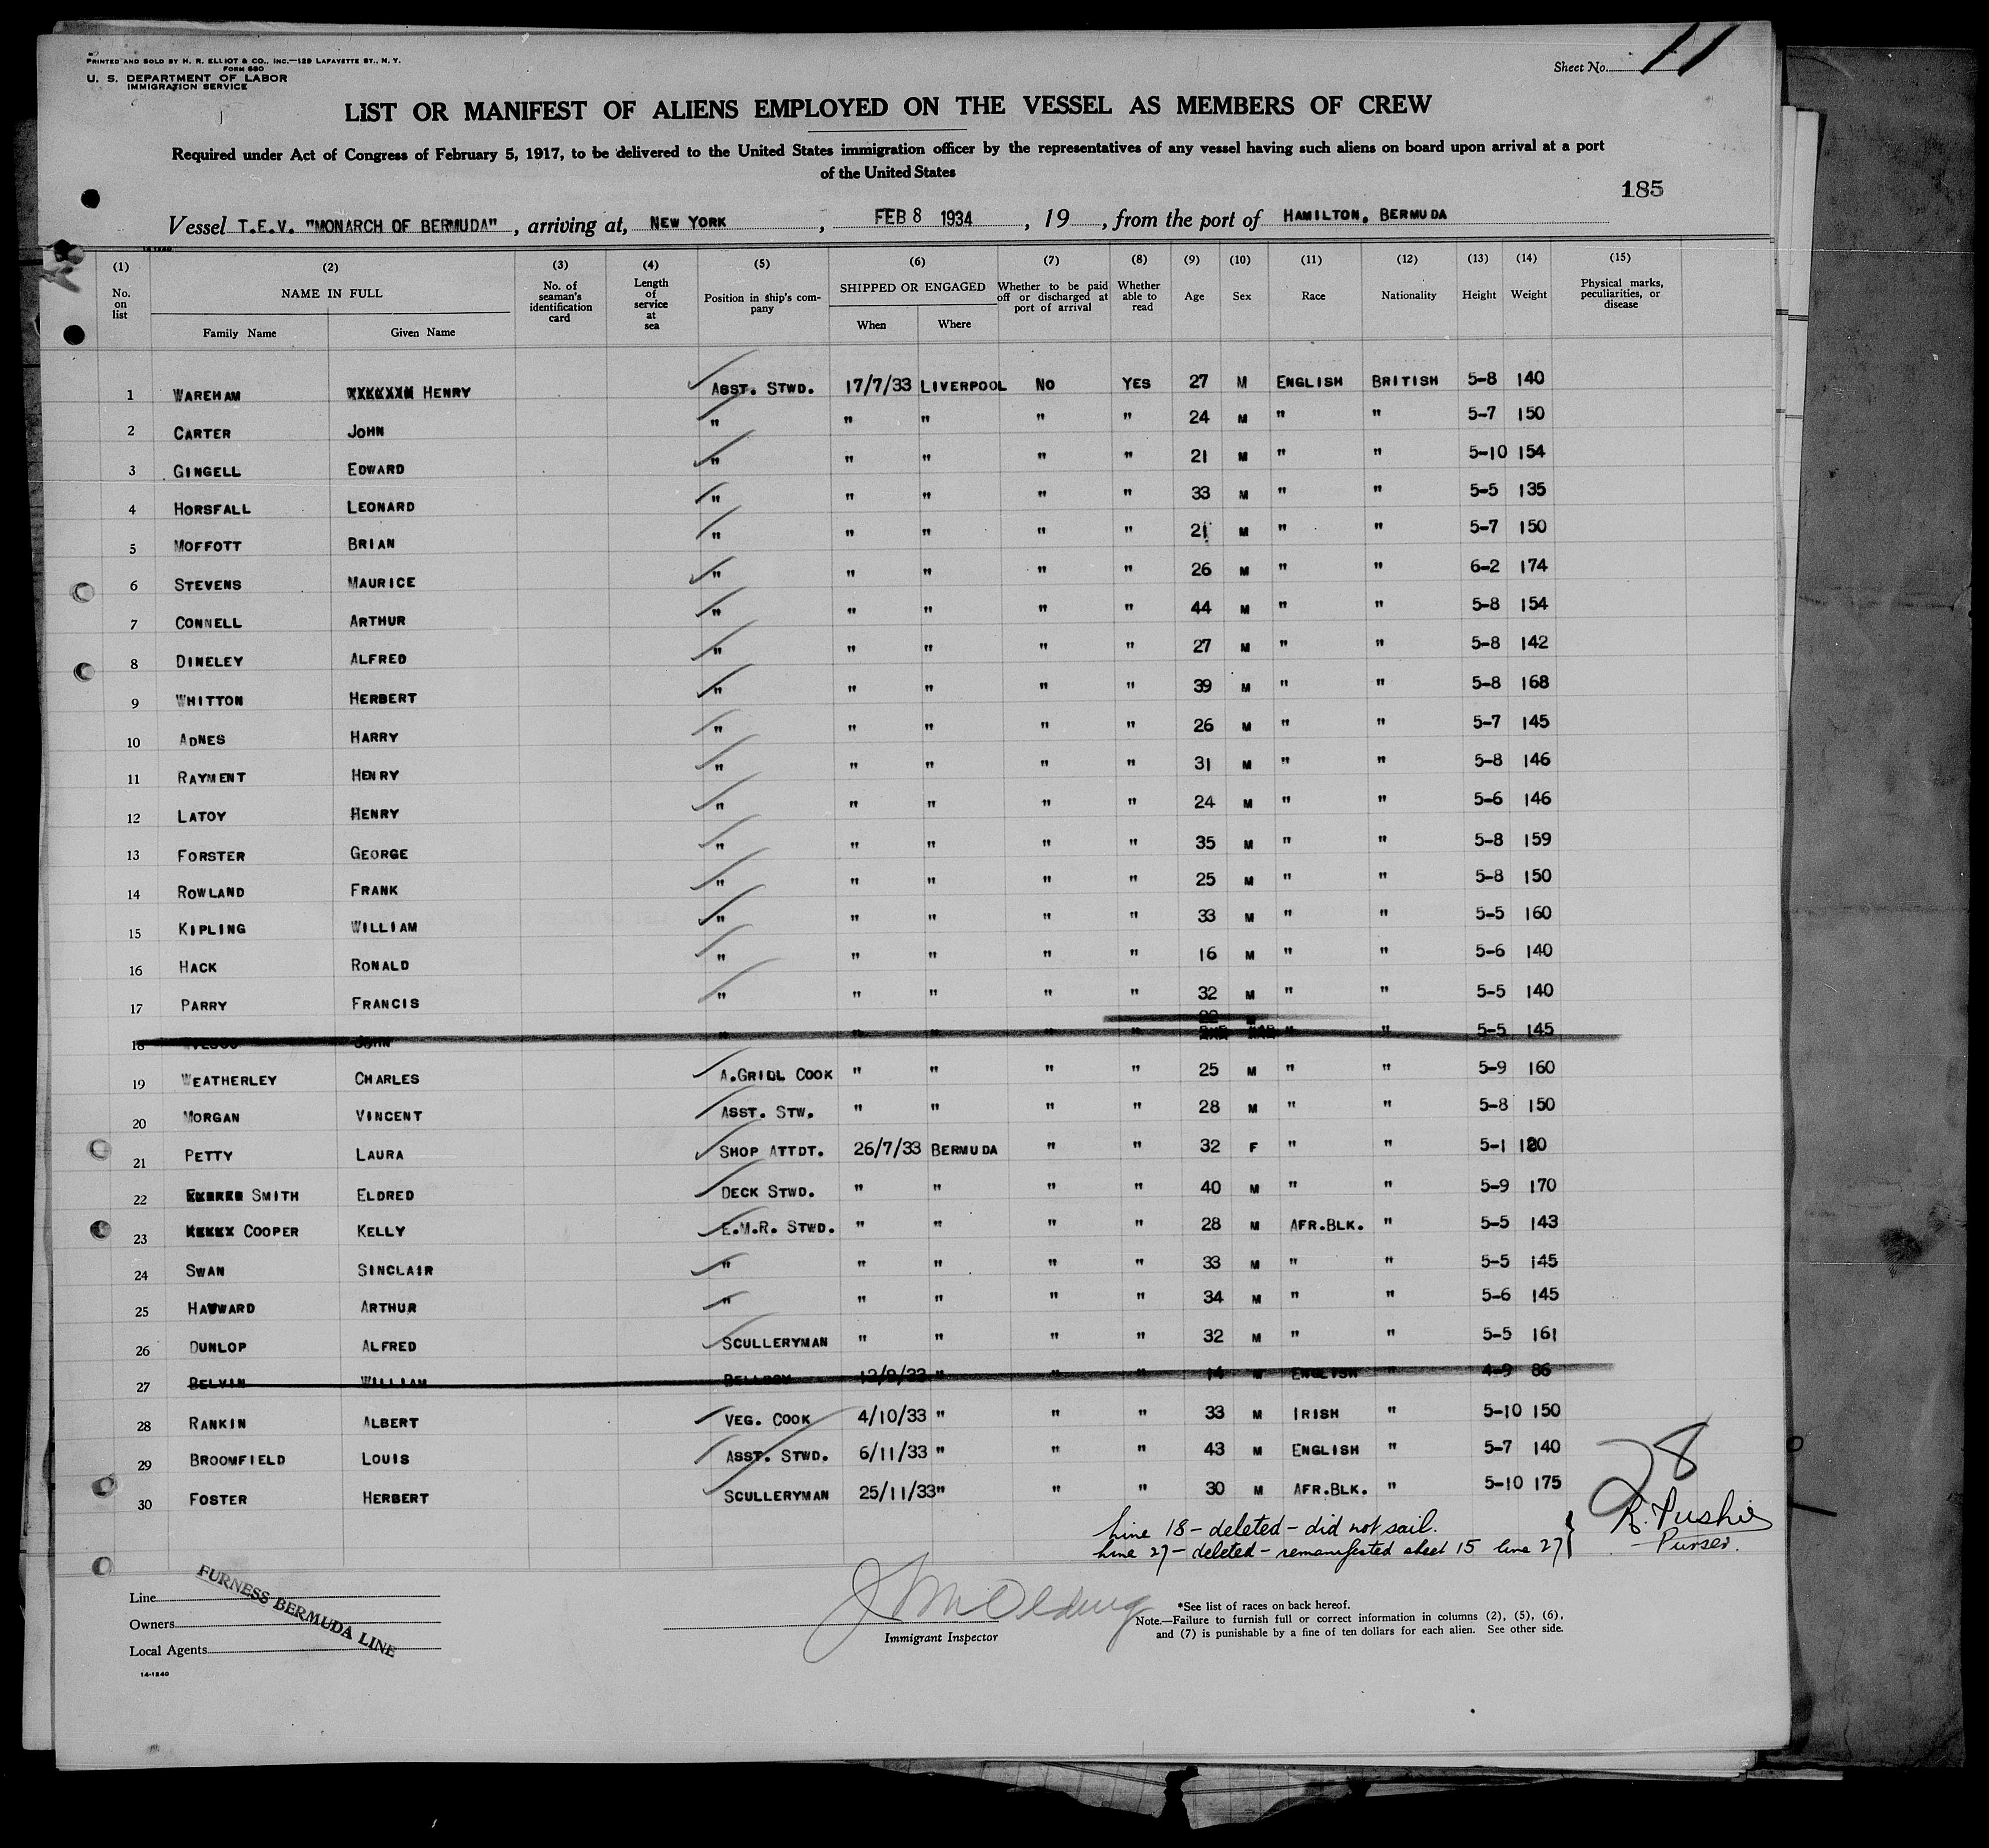 PRINTED AND SOLD BY H. R. ELLIOT & CO., INC.—129 LAFAYETTE ST., N. Y.
FORM 680
U. S. DEPARTMENT OF LABOR
IMMIGRATION SERVICE
Sheet No. 11
LIST OR MANIFEST OF ALIENS EMPLOYED ON THE VESSEL AS MEMBERS OF CREW
Required under Act of Congress of February 5, 1917, to be delivered to the United States immigration officer by the representatives of any vessel having such aliens on board upon arrival at a port
of the United States
185
Vessel T.E.V. "MONARCH OF BERMUDA", arriving at, NEW YORK, FEB 8 1934, 19, from the port of HAMILTON, BERMUDA
14-1240
(1) (2) (3) (4) (5) (6) (7) (8) (9) (10) (11) (12) (13) (14) (15)
No. on list NAME IN FULL Family Name Given Name No. of seaman's identification card Length of service at sea Position in ship's company SHIPPED OR ENGAGED When Where Whether to be paid off or discharged at port of arrival Whether able to read Age Sex Race Nationality Height Weight Physical marks, peculiarities, or disease
1 WAREHAM HENRY ASST. STWD. 17/7/33 LIVERPOOL NO YES 27 M ENGLISH BRITISH 5-8 140
2 CARTER JOHN " " " " " 24 M " " 5-7 150
3 GINGELL EDWARD " " " " " 21 M " " 5-10 154
4 HORSFALL LEONARD " " " " " 33 M " " 5-5 135
5 MOFFOTT BRIAN " " " " " 21 M " " 5-7 150
6 STEVENS MAURICE " " " " " 26 M " " 6-2 174
7 CONNELL ARTHUR " " " " " 44 M " " 5-8 154
8 DINELEY ALFRED " " " " " 27 M " " 5-8 142
9 WHITTON HERBERT " " " " " 39 M " " 5-8 168
10 ADNES HARRY " " " " " 26 M " " 5-7 145
11 RAYMENT HENRY " " " " " 31 M " " 5-8 146
12 LATOY HENRY " " " " " 24 M " " 5-6 146
13 FORSTER GEORGE " " " " " 35 M " " 5-8 159
14 ROWLAND FRANK " " " " " 25 M " " 5-8 150
15 KIPLING WILLIAM " " " " " 33 M " " 5-5 160
16 HACK RONALD " " " " " 16 M " " 5-6 140
17 PARRY FRANCIS " " " " " 32 M " " 5-5 140
18 JOHN " " " " " " " 5-5 145
19 WEATHERLEY CHARLES A.GRILL COOK " " " " 25 M " " 5-9 160
20 MORGAN VINCENT ASST. STW. " " " " 28 M " " 5-8 150
21 PETTY LAURA SHOP ATTDT. 26/7/33 BERMUDA " " 32 F " " 5-1 120
22 SMITH ELDRED DECK STWD. " " " " 40 M " " 5-9 170
23 COOPER KELLY E.M.R. STWD. " " " " 28 M AFR.BLK. " 5-5 143
24 SWAN SINCLAIR " " " " " 33 M " " 5-5 145
25 HAYWARD ARTHUR " " " " " 34 M " " 5-6 145
26 DUNLOP ALFRED SCULLERYMAN " " " " 32 M " " 5-5 161
27 BELVIN WILLIAM BELLBOY 12/9/33 " " " 14 M ENGLISH " 4-9 86
28 RANKIN ALBERT VEG. COOK 4/10/33 " " " 33 M IRISH " 5-10 150
29 BROOMFIELD LOUIS ASST. STWD. 6/11/33 " " " 43 M ENGLISH " 5-7 140
30 FOSTER HERBERT SCULLERYMAN 25/11/33 " " " 30 M AFR.BLK. " 5-10 175
28
Line 18 - deleted - did not sail.
Line 27 - deleted - remanifested sheet 15 line 27
Purser.
Line
Owners
Local Agents
FURNESS BERMUDA LINE
14-1240
Immigrant Inspector
*See list of races on back hereof.
Note.—Failure to furnish full or correct information in columns (2), (5), (6),
and (7) is punishable by a fine of ten dollars for each alien. See other side.